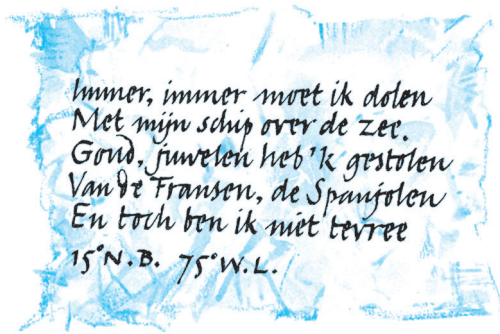 Immer, immer moet ik dolen
Met mijn schip over de zee.
Goud, juwelen heb'k gestolen
Van de Fransen, de Spanjolen
En toch ben ik niet tevree
15°N.B. 75°W.L.